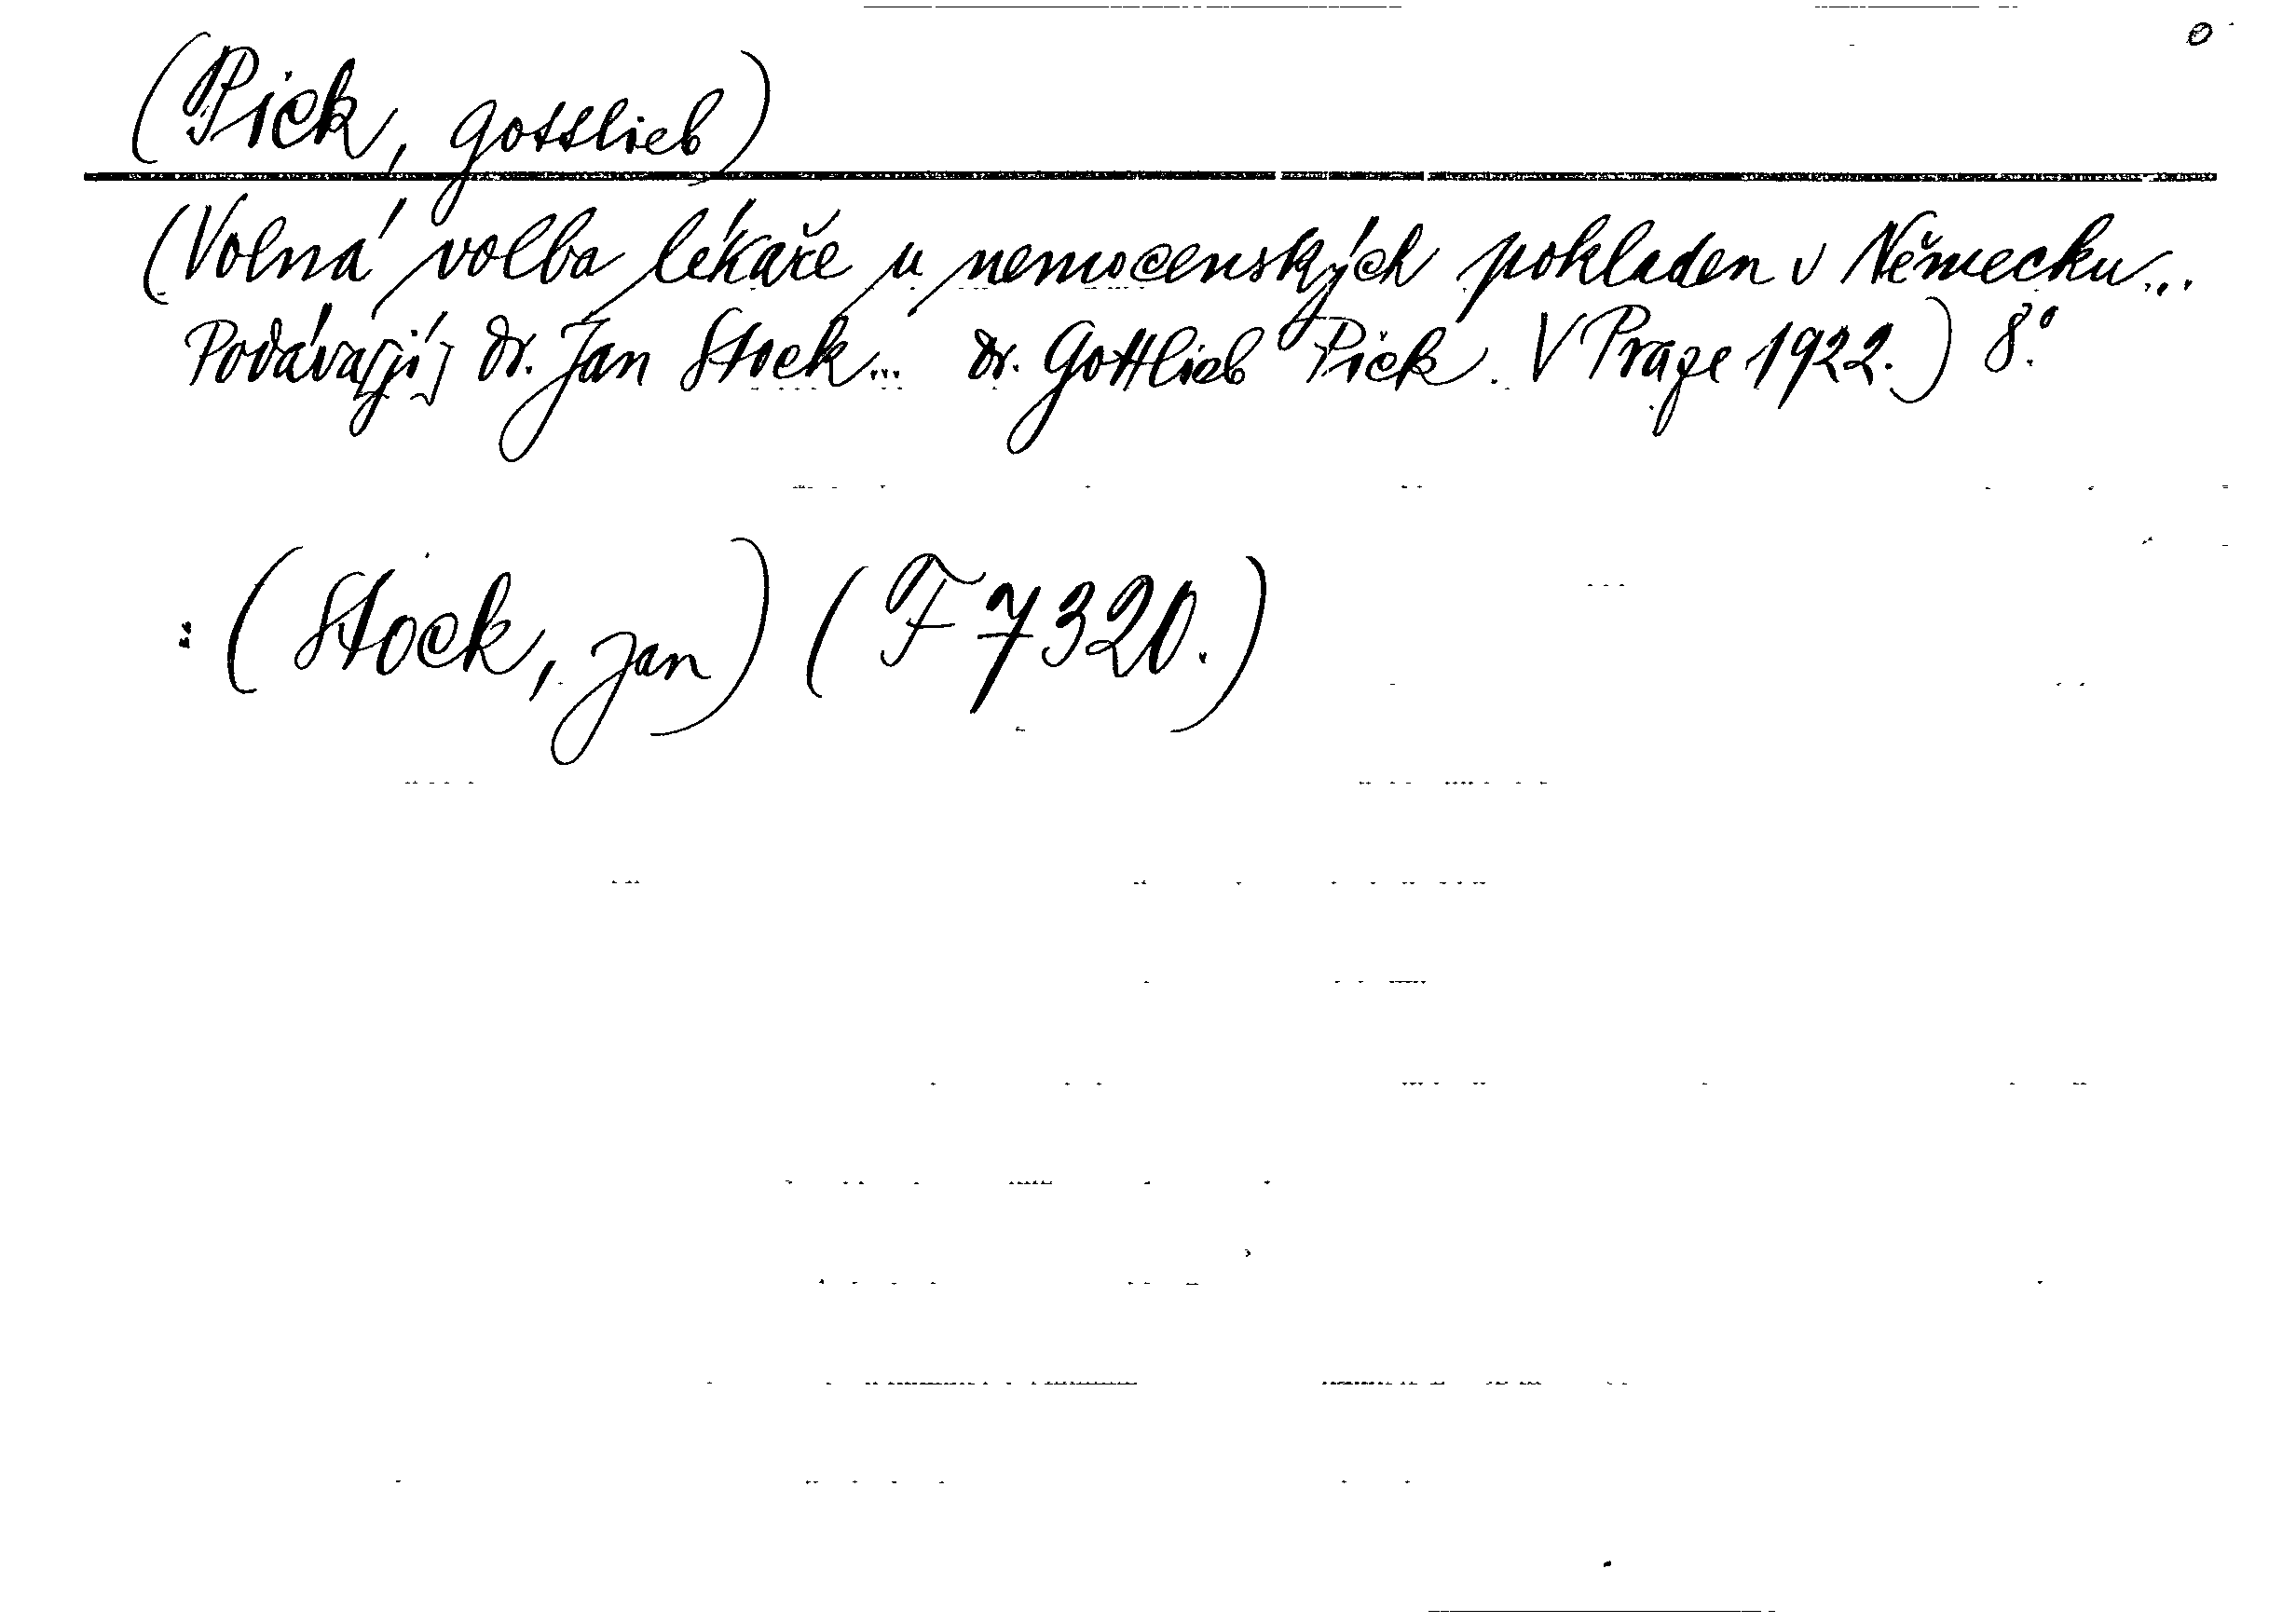 o
(Pick, Gottlieb)
(Volná volba lékaře u nemocenských pokladen v Německu...
Podáva[jí] dr. Jan Stock... dr. Gottlieb Pick. V Praze 1922.) 8.°
: (Stock, Jan) (F 7320.)